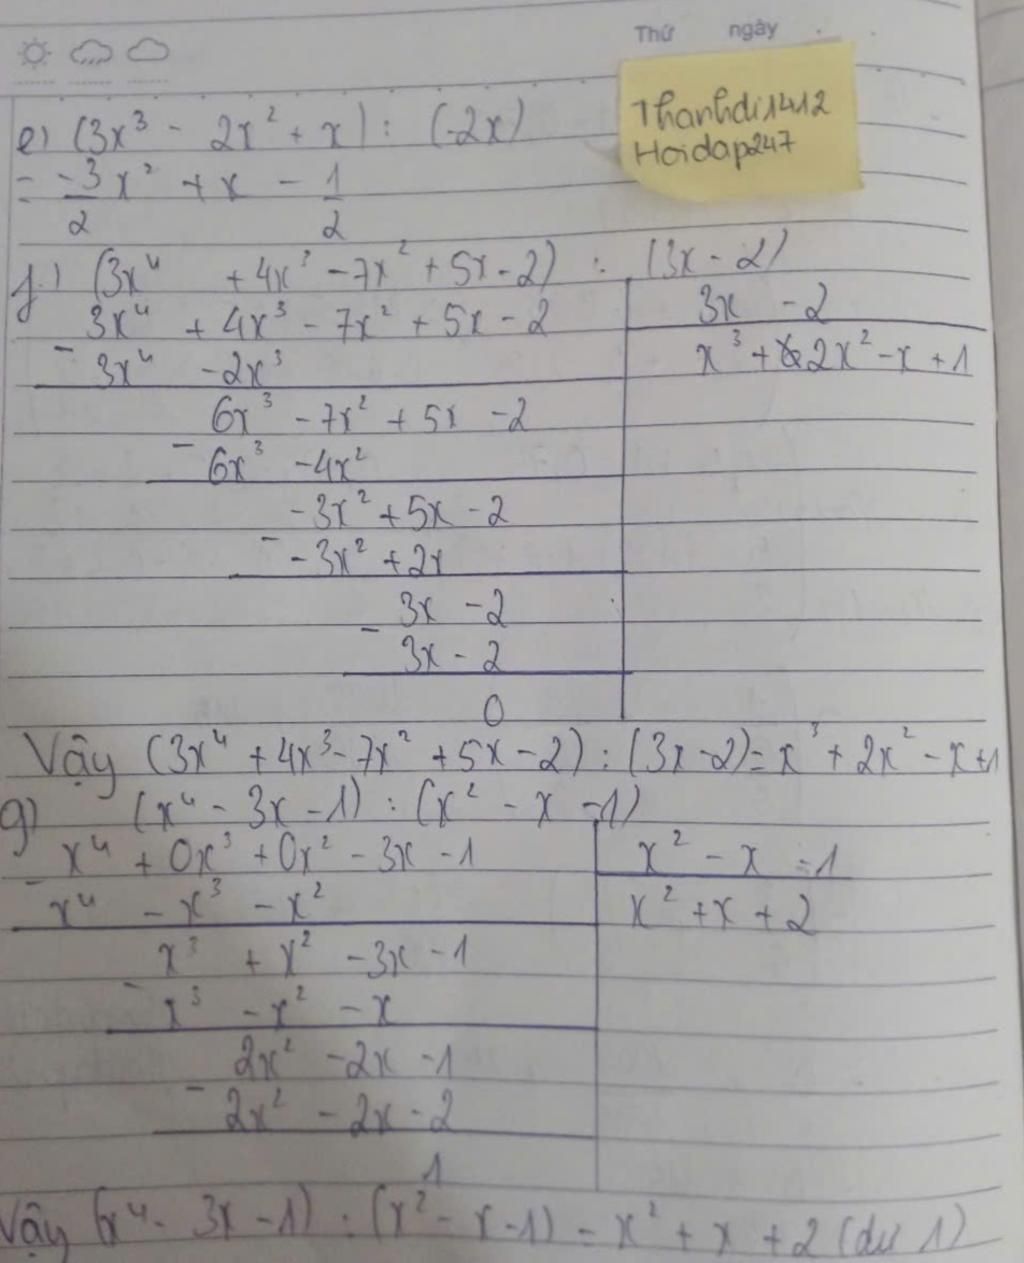 Thứ ngày
Thanhdi1412
Hoidap247
e) (3x³ - 2x² + x) : (-2x)
= -3/2 x² + x - 1/2
f.) (3x⁴ + 4x³ - 7x² + 5x - 2) : (3x - 2)
3x⁴ + 4x³ - 7x² + 5x - 2 | 3x - 2
- 3x⁴ - 2x³ | x³ + 2x² - x + 1
6x³ - 7x² + 5x - 2
- 6x³ - 4x²
-3x² + 5x - 2
- -3x² + 2x
3x - 2
- 3x - 2
0
Vậy (3x⁴ + 4x³ - 7x² + 5x - 2) : (3x - 2) = x³ + 2x² - x + 1
g) (x⁴ - 3x - 1) : (x² - x - 1)
x⁴ + 0x³ + 0x² - 3x - 1 | x² - x - 1
- x⁴ - x³ - x² | x² + x + 2
x³ + x² - 3x - 1
- x³ - x² - x
2x² - 2x - 1
- 2x² - 2x - 2
1
Vậy (x⁴ - 3x - 1) : (x² - x - 1) = x² + x + 2 (dư 1)